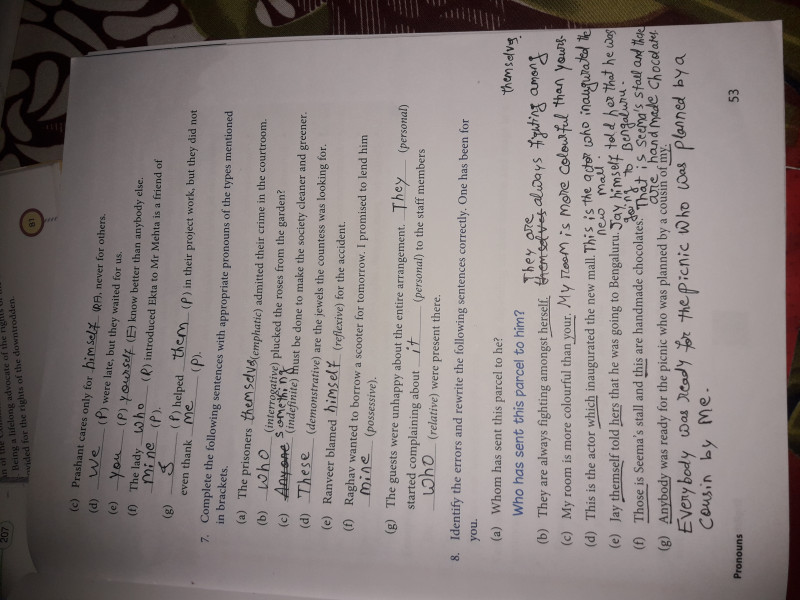 207
81
Being a lifelong advocate of the rights of
for the rights of the downtrodden.
(c) Prashant cares only for himself (R), never for others.
(d) We (P) were late, but they waited for us.
(e) you (P) yourself (E) know better than anybody else.
(f) The lady who (R) introduced Ekta to Mr Mehta is a friend of
mine (P).
(g) I (P) helped them (P) in their project work, but they did not
even thank me (P).
7. Complete the following sentences with appropriate pronouns of the types mentioned
in brackets.
(a) The prisoners themselves (emphatic) admitted their crime in the courtroom.
(b) who (interrogative) plucked the roses from the garden?
(c) Anyone something (indefinite) must be done to make the society cleaner and greener.
(d) These (demonstrative) are the jewels the countess was looking for.
(e) Ranveer blamed himself (reflexive) for the accident.
(f) Raghav wanted to borrow a scooter for tomorrow. I promised to lend him
mine (possessive).
(g) The guests were unhappy about the entire arrangement. They (personal)
started complaining about it (personal) to the staff members
who (relative) were present there.
8. Identify the errors and rewrite the following sentences correctly. One has been for
you.
(a) Whom has sent this parcel to he?
Who has sent this parcel to him?
(b) They are always fighting amongst herself. They are themselves always fighting among themselves.
(c) My room is more colourful than your. My room is more colourful than yours.
(d) This is the actor which inaugurated the new mall. This is the actor who inaugurated the new mall.
(e) Jay themself told hers that he was going to Bengaluru. Jay himself told her that he was going to Bengaluru.
(f) Those is Seema's stall and this are handmade chocolates. That is Seema's stall and these are handmade chocolates.
(g) Anybody was ready for the picnic who was planned by a cousin of my.
Everybody was ready for the picnic who was planned by a
cousin by me.
Pronouns
53